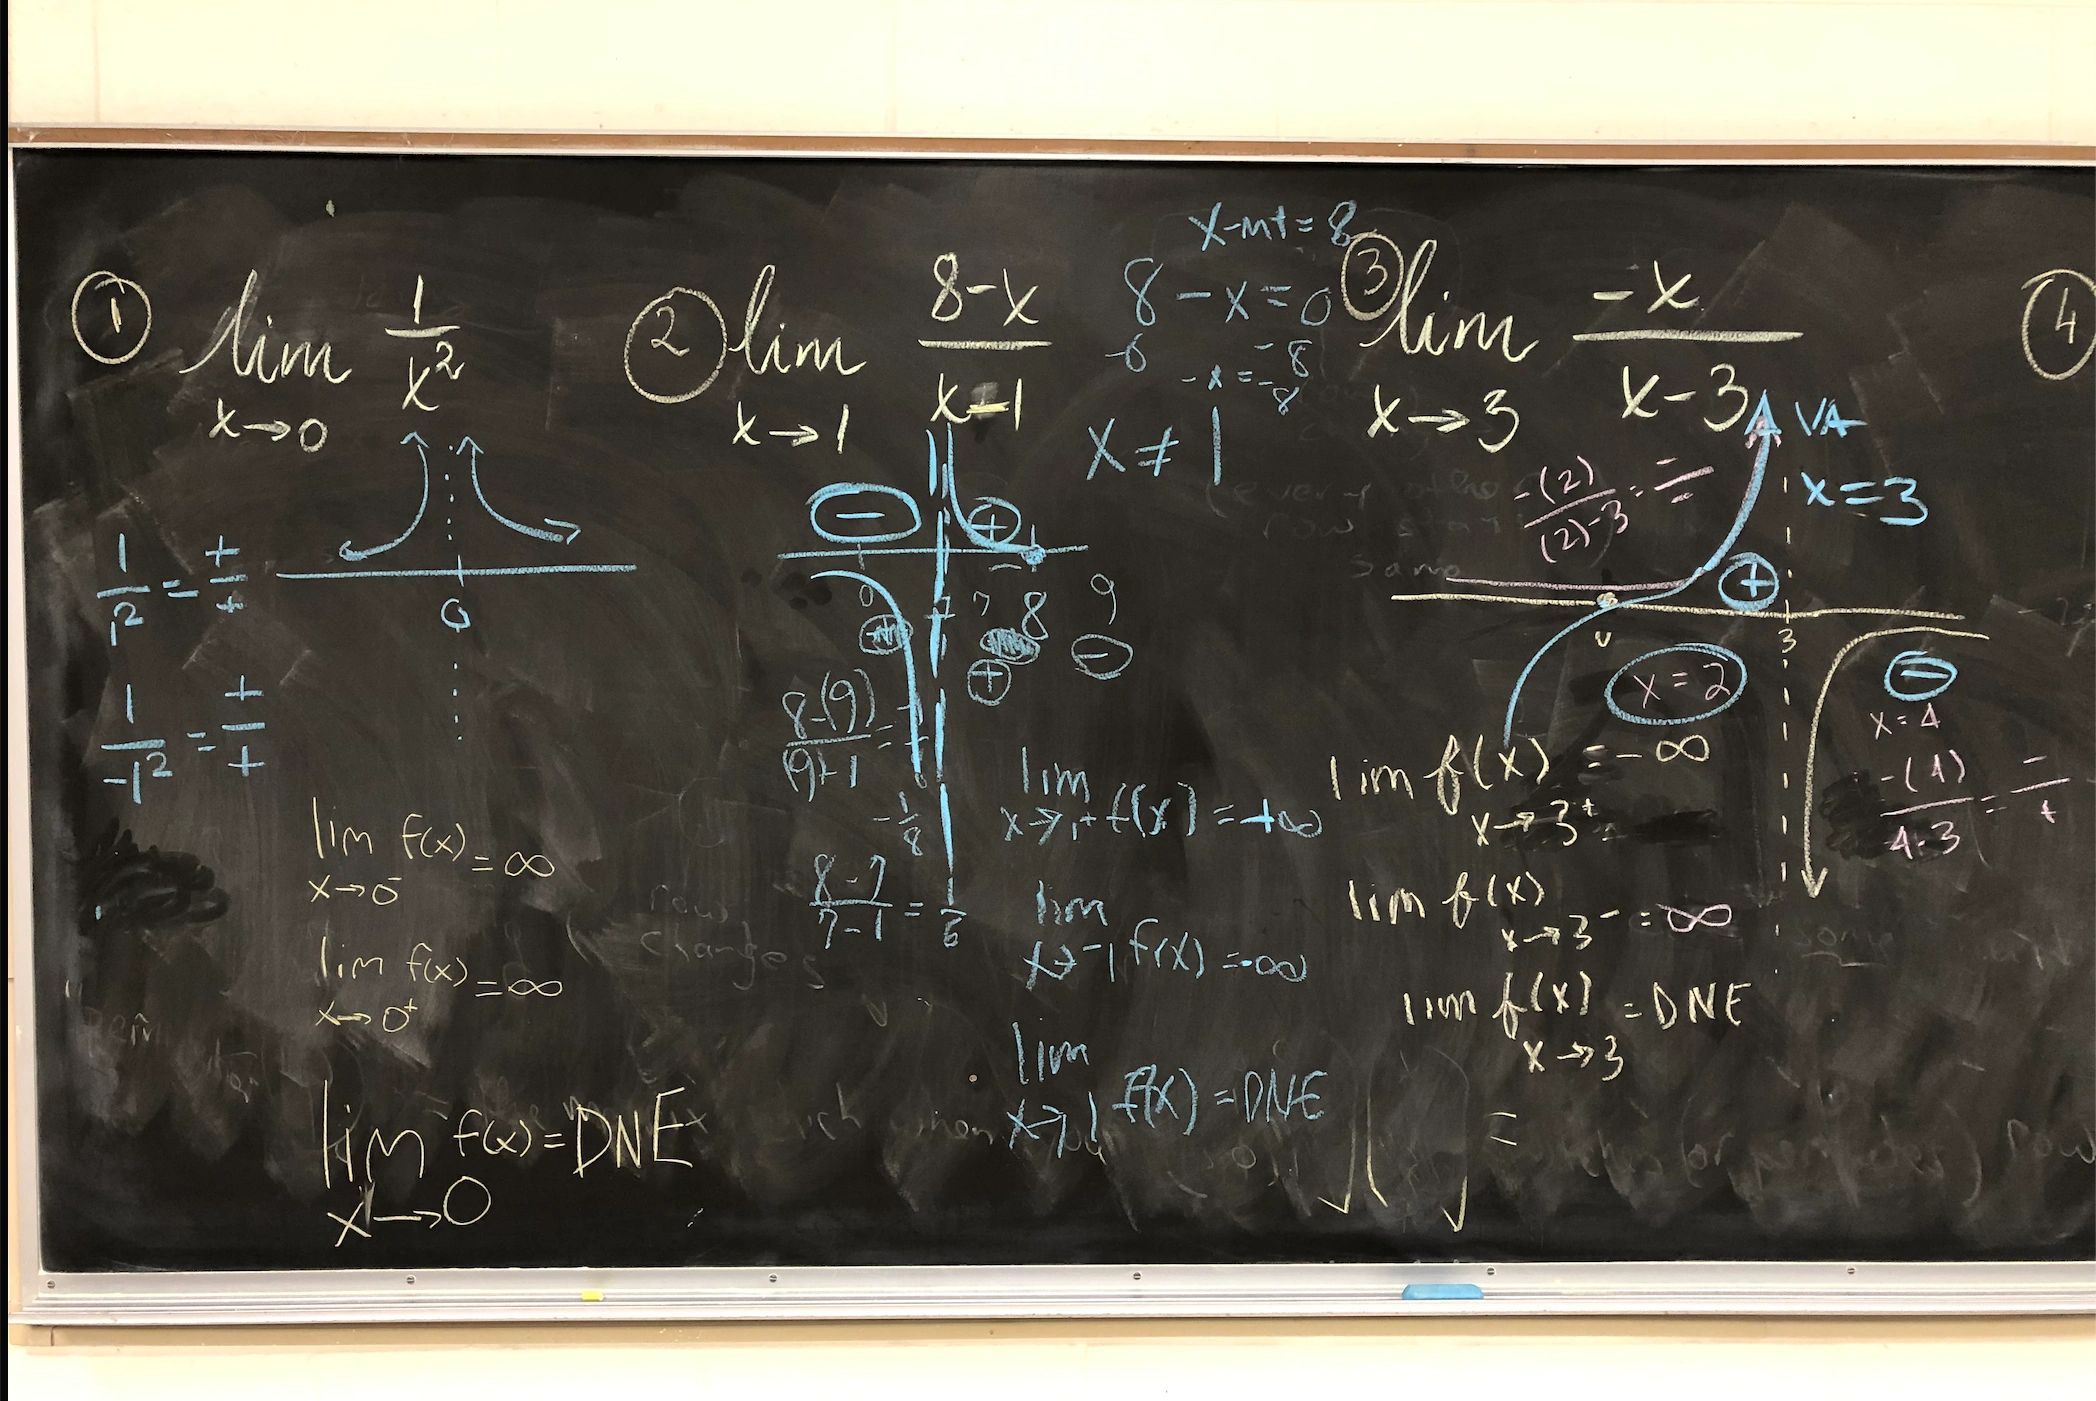 ① lim x→0 1/x²
1/1² = +/+
1/-1² = +/+
0
lim x→0⁻ f(x) = ∞
lim x→0⁺ f(x) = ∞
lim x→0 f(x) = DNE
② lim x→1 8-x/x-1
x-int = 8
8-x=0
-8 -8
-x=-8
x ≠ 1
- +
0 7 8 9
+ -
8-(9)/(9)-1 = -/+
-1/8
8-7/7-1 = 1/6
lim x→1⁺ f(x) = +∞
lim x→⁻1 f(x) = -∞
lim x→1 f(x) = DNE
③ lim x→3 -x/x-3
VA
x=3
-(2)/(2)-3 = -/-
+
0 3
x=2
-
x=4
-(4)/4-3 = -/+
lim f(x) x→3⁺ = -∞
lim f(x) x→3⁻ = ∞
lim f(x) x→3 = DNE
=
④